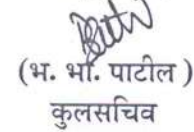 (भ. भों. पाटील )
कुलसचिव